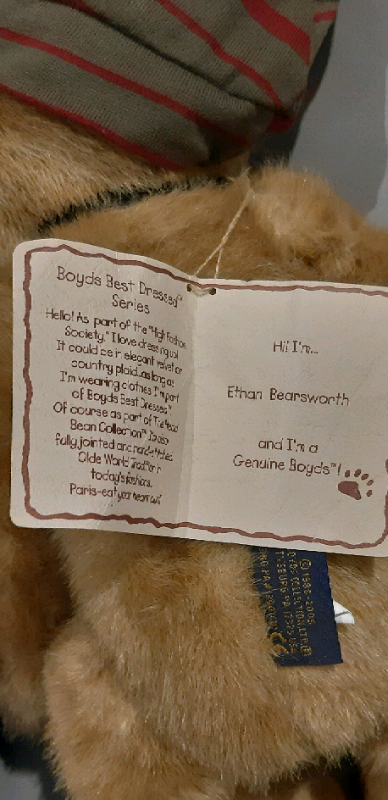 Boyds Best Dressed™
Series
Hello! As part of the "High Fashion
Society," I love dressing up!
It could be in elegant velvet or
country plaid...as long as
I'm wearing clothes I'm part
of Boyds Best Dressed.™
Of course as part of The Head
Bean Collection™ I'm also
fully jointed and hand-stitched
Olde World Tradition in
today's fashions.
Paris-eat your heart out!
Hi! I'm...
Ethan Bearsworth
and I'm a
Genuine Boyds™!
© 1988-2005
BOYDS COLLECTION, LTD.®